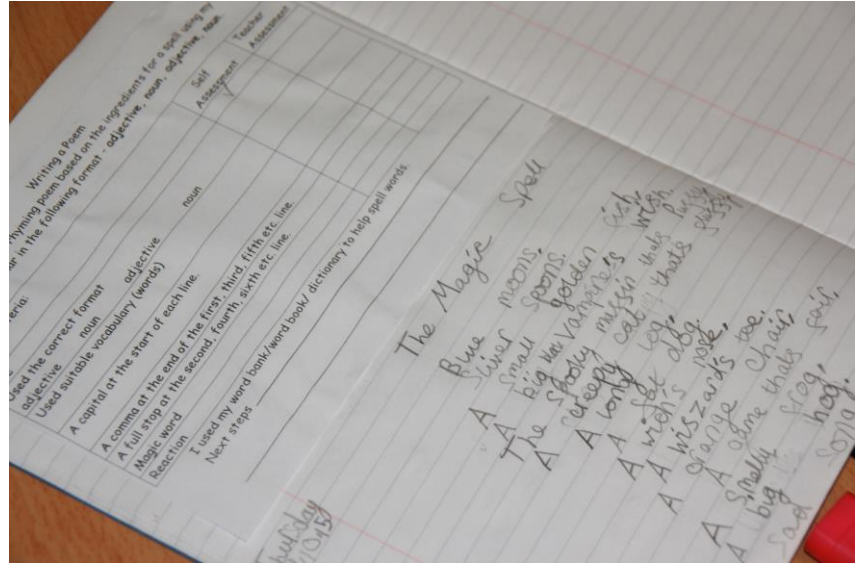 Writing a Poem
hyming poem based on the ingredients for a spell using my
ar in the following format - adjective, noun, adjective, noun.
Self
Assessment
Teacher
Assessment
eria:
Used the correct format
adjective noun adjective noun
Used suitable vocabulary (words)
A capital at the start of each line.
A comma at the end of the first, third, fifth etc. line.
A full stop at the second, fourth, sixth etc. line.
Magic word
Reaction
I used my word bank/word book/ dictionary to help spell words.
Next steps
The Magic Spell
Blue moons,
Sliver spoons.
A small golden fish,
A big Vampire's wish.
The spooky mussin thats
A creepy cat thats
A wonky leg,
A fat dog.
A wich's nose,
A wiszard's toe.
A orange chair,
A thats fair,
A smelly frog,
A big hog.
sad song